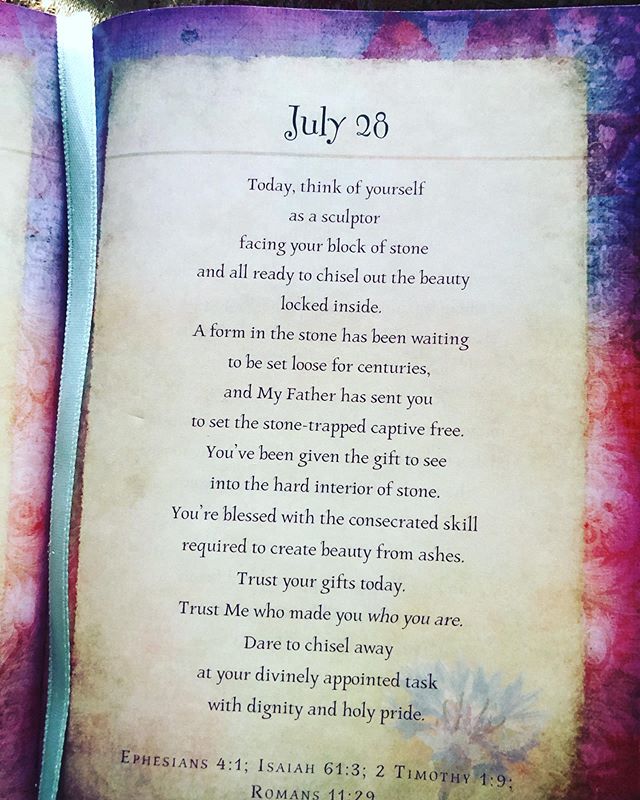 July 28
Today, think of yourself
as a sculptor
facing your block of stone
and all ready to chisel out the beauty
locked inside.
A form in the stone has been waiting
to be set loose for centuries,
and My Father has sent you
to set the stone-trapped captive free.
You've been given the gift to see
into the hard interior of stone.
You're blessed with the consecrated skill
required to create beauty from ashes.
Trust your gifts today.
Trust Me who made you who you are.
Dare to chisel away
at your divinely appointed task
with dignity and holy pride.
EPHESIANS 4:1; ISAIAH 61:3; 2 TIMOTHY 1:9;
ROMANS 11:29